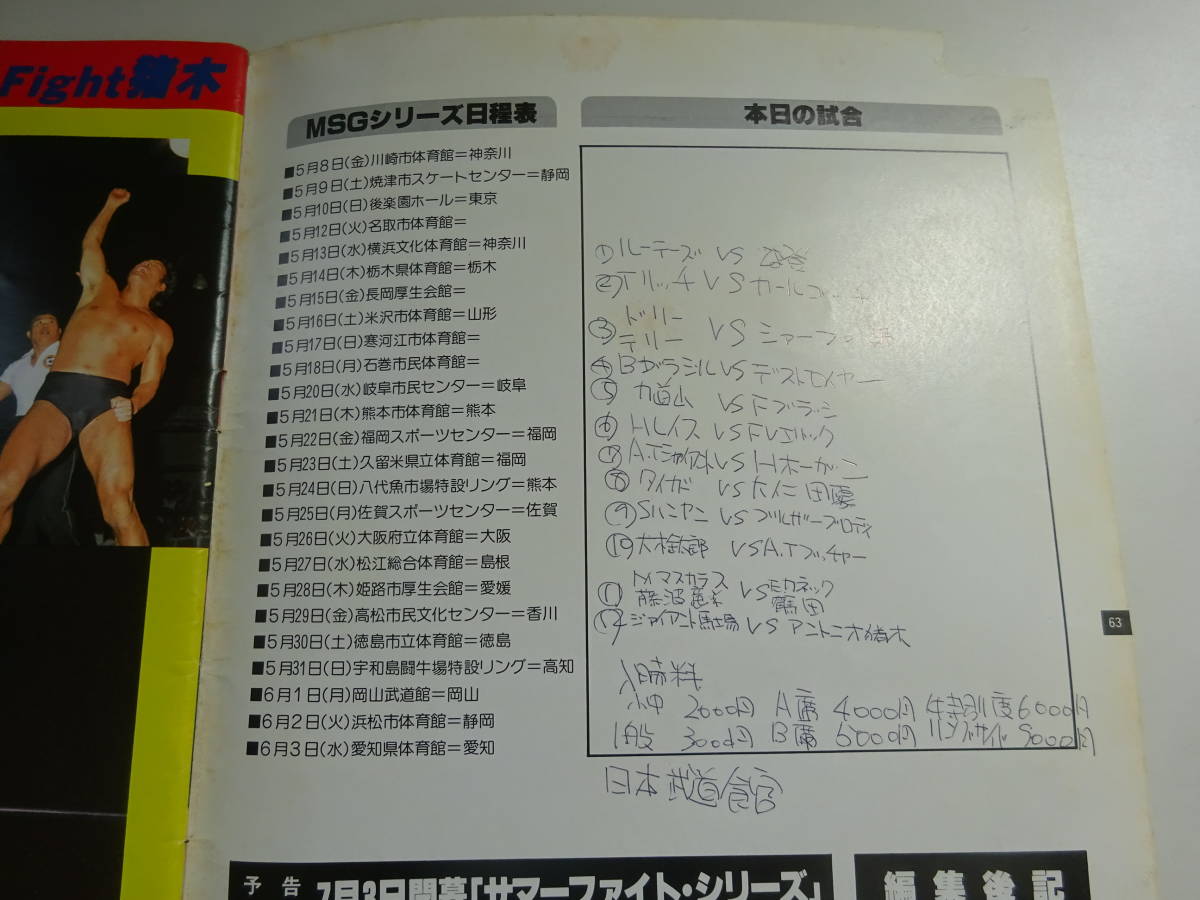 Fight猪木
MSGシリーズ日程表
■5月8日(金)川崎市体育館=神奈川
■5月9日(土)焼津市スケートセンター=静岡
■5月10日(日)後楽園ホール=東京
■5月12日(火)名取市体育館=
■5月13日(水)横浜文化体育館=神奈川
■5月14日(木)栃木県体育館=栃木
■5月15日(金)長岡厚生会館=
■5月16日(土)米沢市体育館=山形
■5月17日(日)寒河江市体育館=
■5月18日(月)石巻市民体育館=
■5月20日(水)岐阜市民センター=岐阜
■5月21日(木)熊本市体育館=熊本
■5月22日(金)福岡スポーツセンター=福岡
■5月23日(土)久留米県立体育館=福岡
■5月24日(日)八代魚市場特設リング=熊本
■5月25日(月)佐賀スポーツセンター=佐賀
■5月26日(火)大阪府立体育館=大阪
■5月27日(水)松江総合体育館=島根
■5月28日(木)姫路市厚生会館=愛媛
■5月29日(金)高松市民文化センター=香川
■5月30日(土)徳島市立体育館=徳島
■5月31日(日)宇和島闘牛場特設リング=高知
■6月1日(月)岡山武道館=岡山
■6月2日(火)浜松市体育館=静岡
■6月3日(水)愛知県体育館=愛知
本日の試合
①ルーテーズ VS
② VS カールゴッチ
③ドリー テリー VS シャープ
④Bボブラジル VS デストロイヤー
⑤力道山 VS Fブラッシー
⑥Hレイス VS FVエリック
⑦A.Tジャイアント VS Hホーガン
⑧タイガー VS
⑨Sハンセン VS ブルザーブロディ
⑩大木金太郎 VS A.Tブッチャー
⑪Mマスカラス 藤波辰巳 VS Eカネック 鶴田
⑫ジャイアント馬場 VS アントニオ猪木
入場料
小中 2000円 A席 4000円 特別リ度 6000円
1般 3000円 B席 5000円 リングサイド 9000円
日本武道館
63
予告
7月3日開幕「サマーファイト・シリーズ」
編集後記